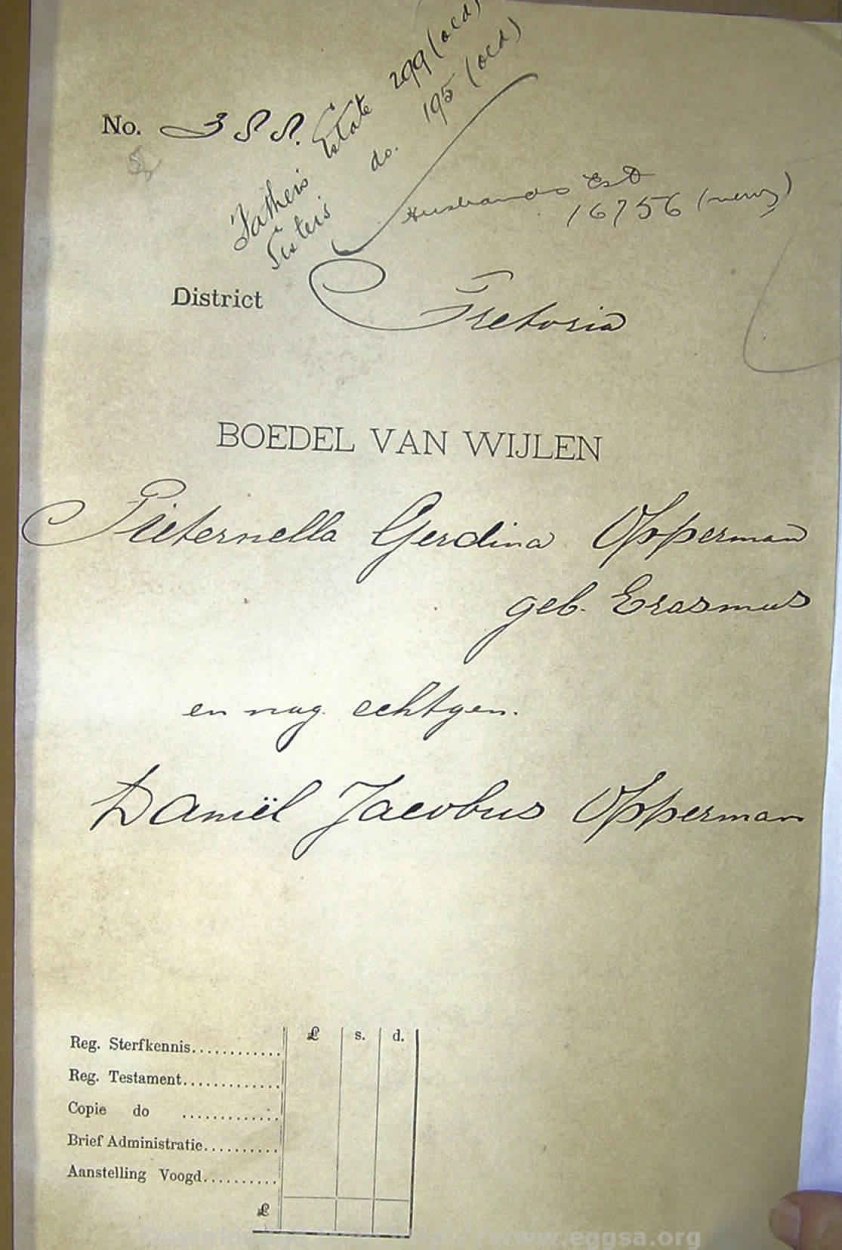 No. 355.
Father's Estate 299 (old)
Sister's do. 195 (old)
Husband's Est
16756 (new)
District Pretoria
BOEDEL VAN WIJLEN
Pieternella Gerdina Opperman
geb. Erasmus
en nag. echtgen.
Daniël Jacobus Opperman
£ s. d.
Reg. Sterfkennis
Reg. Testament
Copie do
Brief Administratie
Aanstelling Voogd
£
www.eggsa.org